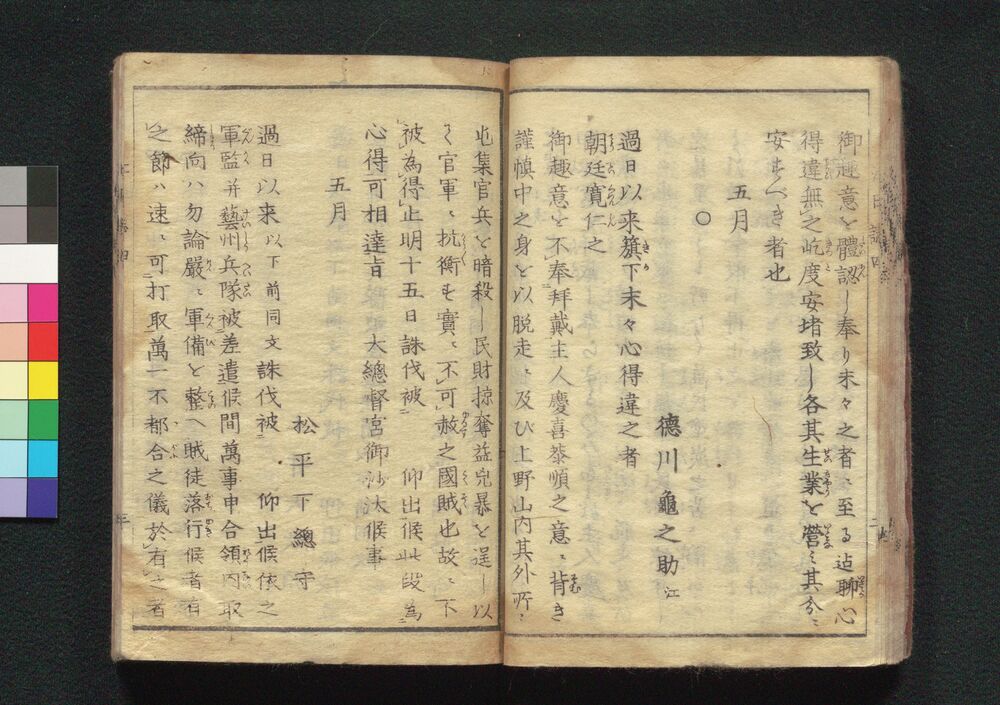 御趣意を體認し奉り末々之者ニ至る迠聊心
得違無之屹度安堵致し各其生業を營ミ其分ニ
安ずべき者也
五月
〇
德川龜之助江
過日以来籏下末々心得違之者
朝廷寬仁之
御趣意を不奉拜戴主人慶喜恭順之意ニ背き
謹慎中之身を以脱走ニ及び上野山内其外所ニ
屯集官兵を暗殺し民財掠奪益兇暴を逞し以
て官軍ニ抗衡も實ニ不可赦之國賊也故ニ不
被為得止明十五日誅伐被 仰出候此段為
心得可相達旨 大總督宮御沙汰候事
五月
松平下總守
過日以来以下前同文誅伐被 仰出候依之
軍監并藝州兵隊被差遣候間萬事申合領内取
締向ハ勿論嚴ニ軍備を整へ賊徒落行候者有
之節ハ速ニ可打取萬一不都合之儀於有之者